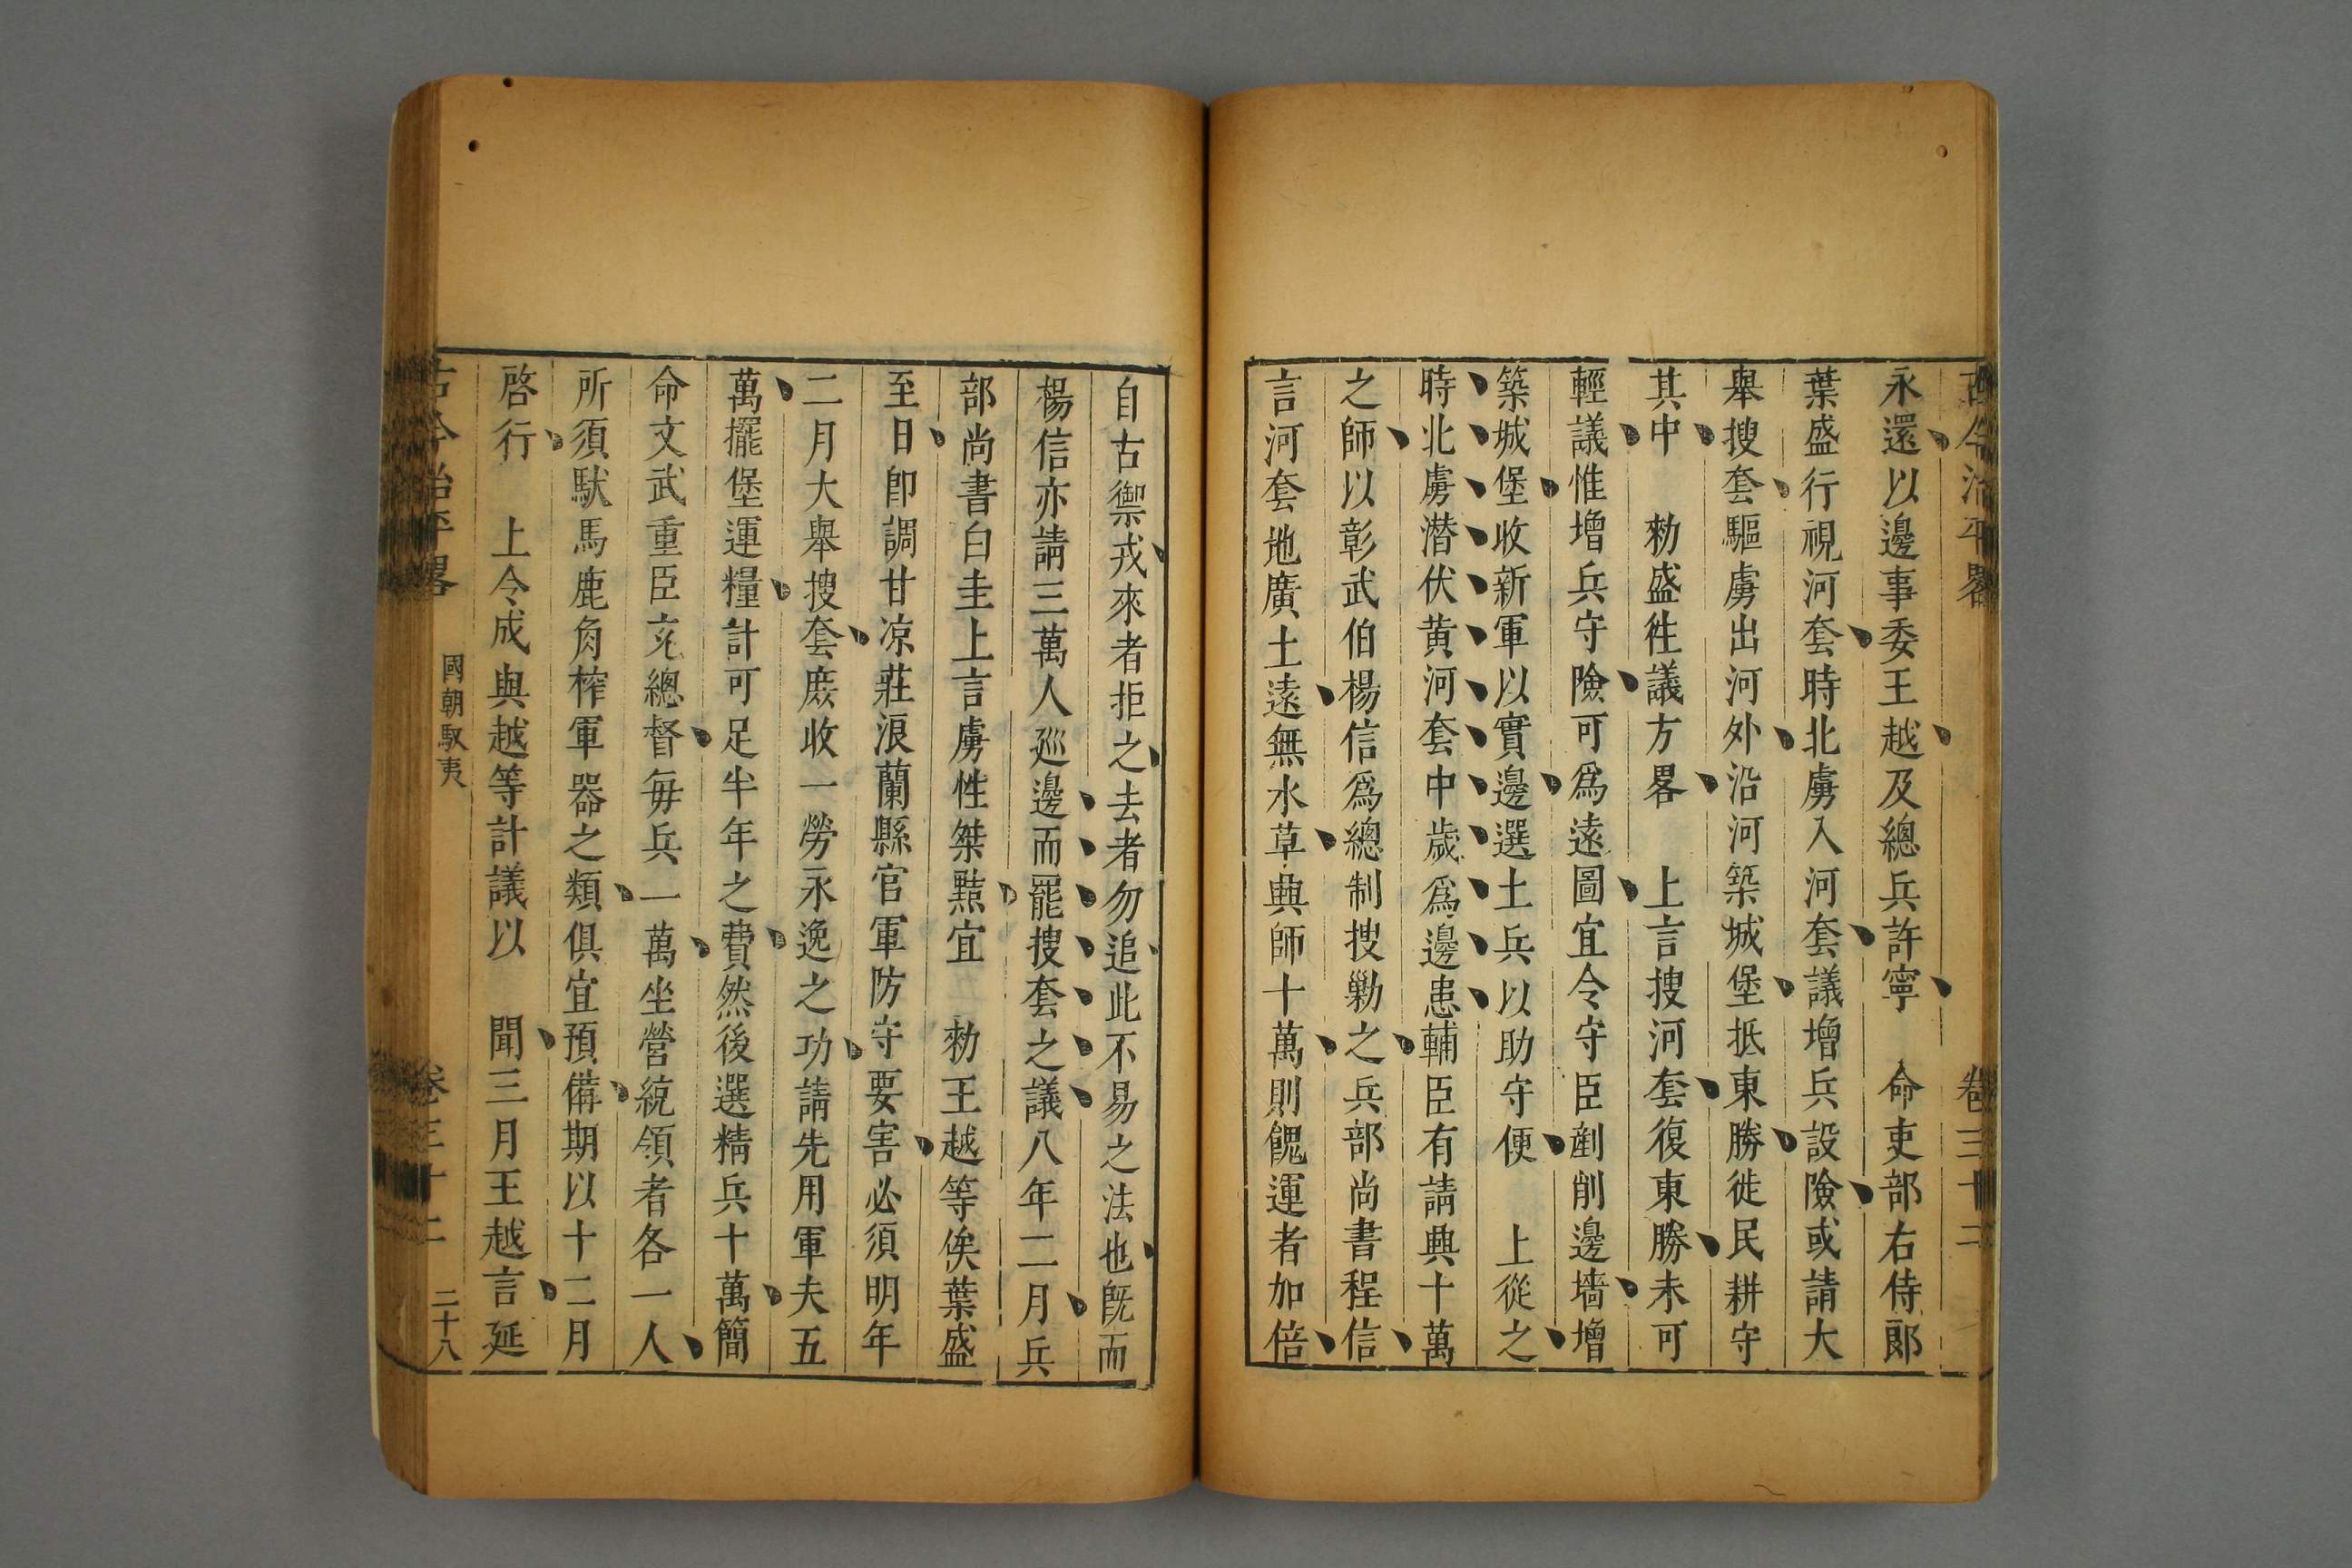 古今治平畧 卷三十三
永還以邊事委王越及總兵許寧 命吏部右侍郎
葉盛行視河套時北虜入河套議增兵設險或請大
舉搜套驅虜出河外沿河築城堡抵東勝徙民耕守
其中 勑盛徃議方畧 上言搜河套復東勝未可
輕議惟增兵守險可爲遠圖宜令守臣剷削邊墻增
築城堡收新軍以實邊選土兵以助守便 上從之
時北虜潜伏黄河套中歲爲邊患輔臣有請興十萬
之師以彰武伯楊信爲總制搜勦之兵部尚書程信
言河套地廣土遠無水草興師十萬則餽運者加倍
自古禦戎來者拒之去者勿追此不易之法也旣而
楊信亦請三萬人廵邊而罷搜套之議八年二月兵
部尚書白圭上言虜性桀黠宜 勑王越等俟葉盛
至日卽調甘凉莊浪蘭縣官軍防守要害必須明年
二月大舉搜套庶收一勞永逸之功請先用軍夫五
萬擺堡運糧計可足半年之費然後選精兵十萬簡
命文武重臣充總督毎兵一萬坐營統領者各一人
所須馱馬鹿角榨軍器之類俱宜預備期以十二月
啓行 上令成與越等計議以 聞三月王越言延
古今治平畧 國朝馭夷 卷三十三 二十八